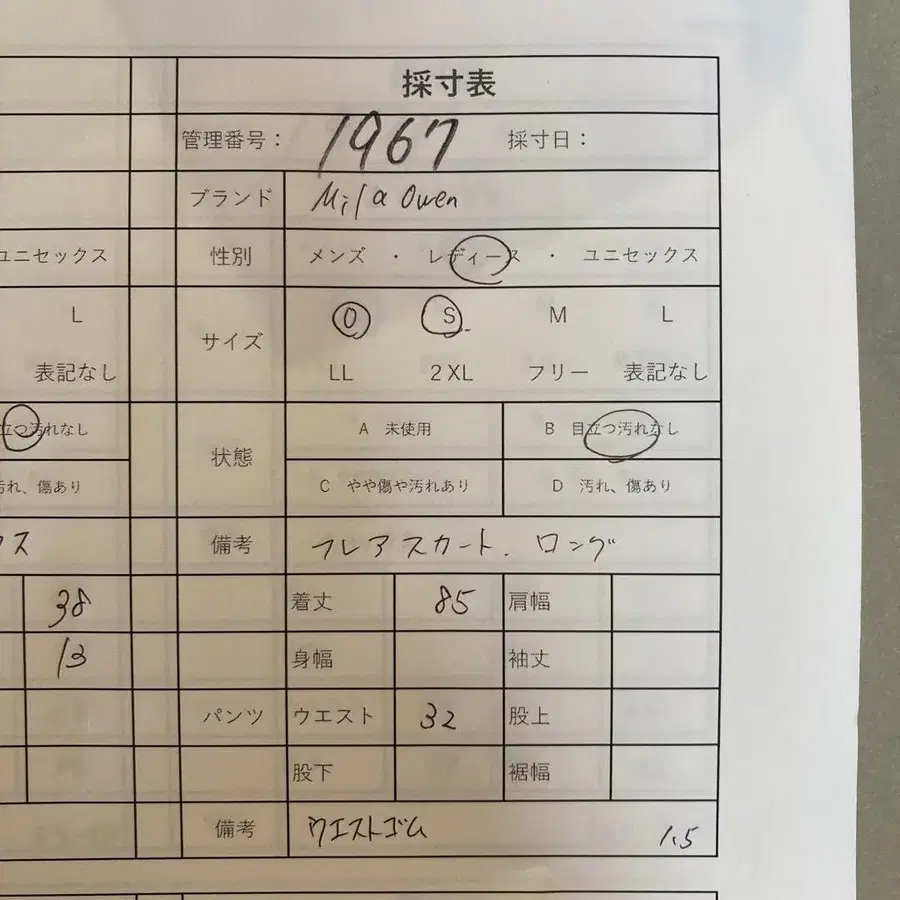 採寸表
管理番号： 1967 採寸日：
ブランド Mila Owen
ユニセックス 性別 メンズ ・ レディース ・ ユニセックス
L サイズ 0 S M L
表記なし LL 2XL フリー 表記なし
立つ汚れなし 状態 A 未使用 B 目立つ汚れなし
汚れ、傷あり C やや傷や汚れあり D 汚れ、傷あり
ス 備考 フレアスカート. ロング
38 着丈 85 肩幅
13 身幅 袖丈
パンツ ウエスト 32 股上
股下 裾幅
備考 ウエストゴム 1.5